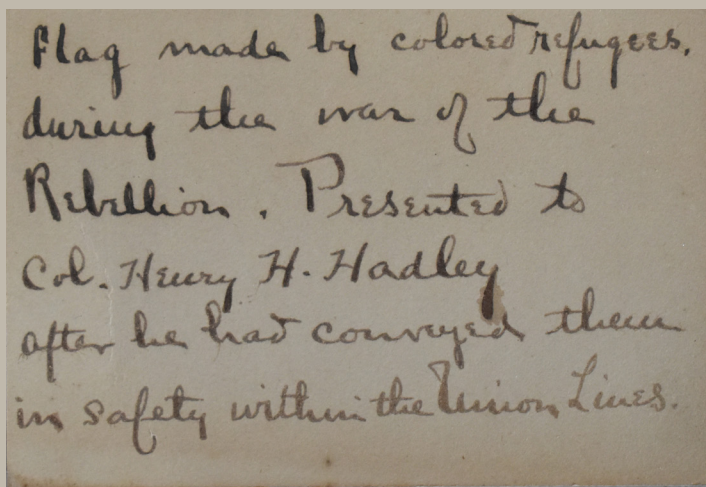 Flag made by colored refugees.
during the war of the
Rebellion. Presented to
Col. Henry H. Hadley
after he had conveyed them
in safety within the Union Lines.